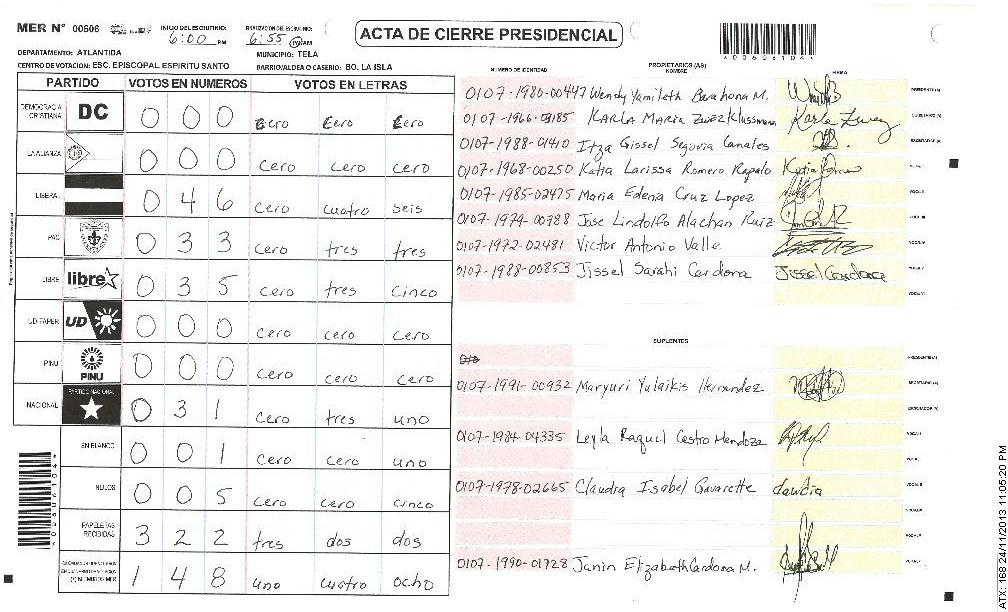 MER N° 00606
INICIO DEL ESCRUTINIO:
6:00 PM
6:55 PM AM
ACTA DE CIERRE PRESIDENCIAL
DEPARTAMENTO: ATLANTIDA
MUNICIPIO: TELA
CENTRO DE VOTACION: ESC. EPISCOPAL ESPIRITU SANTO
BARRIO/ALDEA O CASERIO: BO. LA ISLA
PARTIDO VOTOS EN NUMEROS VOTOS EN LETRAS
DEMOCRACIA CRISTIANA DC 0 0 0 Cero Cero Cero
LA ALIANZA 0 0 0 Cero Cero Cero
LIBERAL 0 4 6 Cero Cuatro Seis
PAC 0 3 3 Cero tres tres
LIBRE libre 0 3 5 Cero tres Cinco
UD FAPER UD 0 0 0 Cero Cero Cero
PINU PINU 0 0 0 Cero Cero Cero
NACIONAL PARTIDO NACIONAL 0 3 1 Cero tres uno
EN BLANCO 0 0 1 Cero Cero uno
NULOS 0 0 5 Cero Cero cinco
PAPELETAS RECIBIDAS 3 2 2 tres dos dos
1 4 8 uno cuatro ocho
NUMERO DE IDENTIDAD
PROPIETARIOS (AS)
NOMBRE
FIRMA
0107-1980-00447 Wendy Yamileth Barahona M.
0107-1966-03185 KARLA MARIA
0107-1988-01410 Itza Gissel Segovia Canales
0107-1968-00250 Katia Larissa Romero Rapalo
0107-1985-02475 Maria Edenia Cruz Lopez
0107-1974-00788 Jose Lindolfo Alachan Ruiz
0107-1972-02481 Victor Antonio Valle
0107-1988-00853 Jissel Sarahi Cardona Jissel Cardona
SUPLENTES
0107-1991-00932 Maryuri Yulaikis Hernandez
0107-1984-04335 Leyla Raquel Castro Mendoza
0107-1978-02665 Claudia Isabel Gavarette
0107-1990-01728 Janin Elizabeth Cardona M.
ATX: 168 24/11/2013 11:05:20 PM